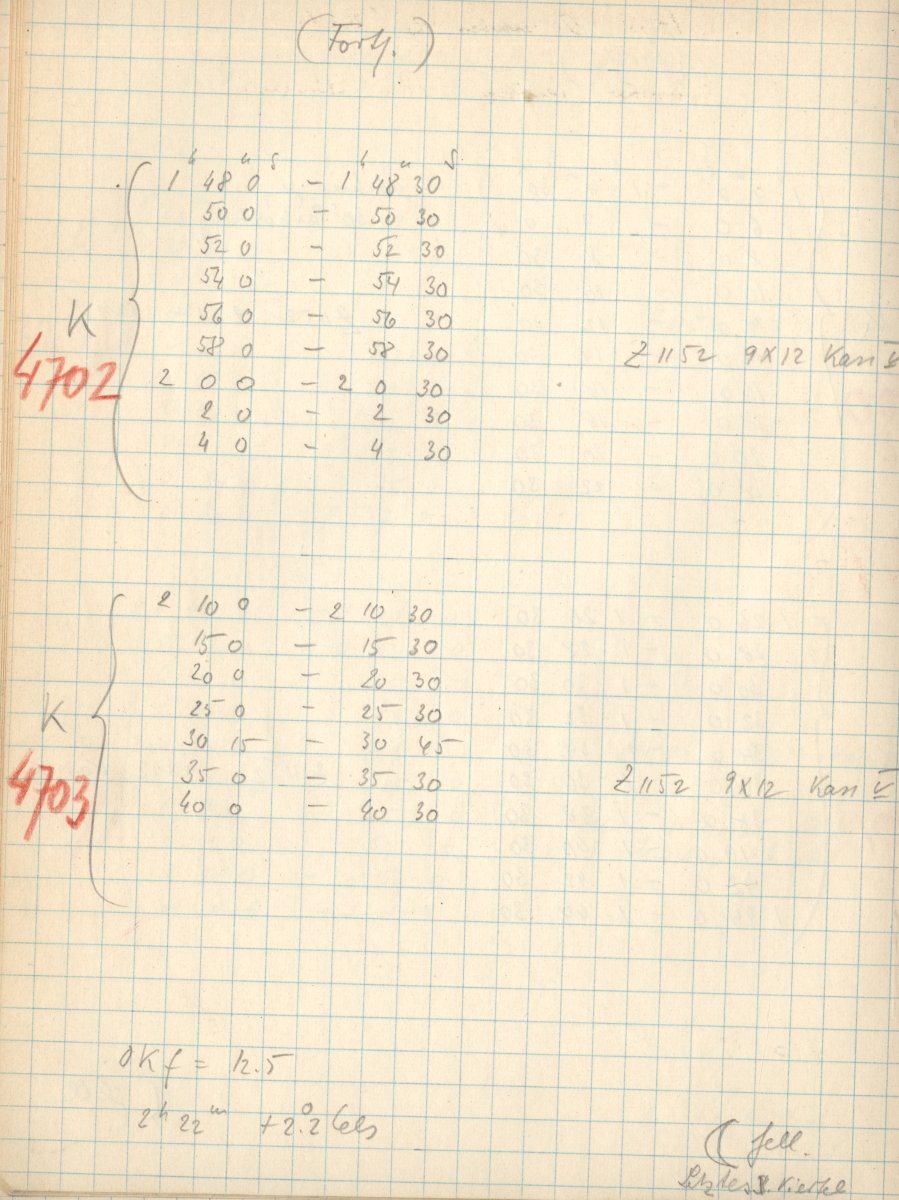 (Forts.)
1h 48m 0s – 1h 48m 30s
50 0 – 50 30
52 0 – 52 30
54 0 – 54 30
K 56 0 – 56 30
4702 58 0 – 58 30 Z 1152 9X12 Kass V
2 0 0 – 2 0 30
2 0 – 2 30
4 0 – 4 30
2 10 0 – 2 10 30
15 0 – 15 30
20 0 – 20 30
K 25 0 – 25 30
30 15 – 30 45
4703 35 0 – 35 30 Z 1152 9X12 Kass V
40 0 – 40 30
OKf = 12.5
2h 22m +2.°2 Cels
( hell.
Letztes Viertel